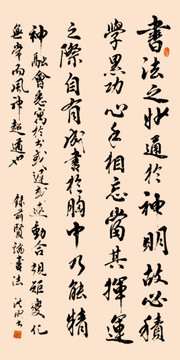 書法之妙通於神明故必積
學累功心手相忘當其揮運
之際自有成書於胸中乃能精
神融會悉寓於書或遲或速動合規矩變化
無常而風神超逸也
錄前賢論書法